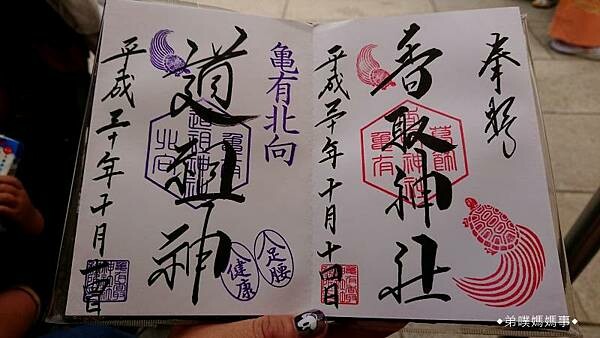 奉拝
香取神社
葛飾
香取神社
亀有
平成三十年十月十四日
亀有北向
道祖神
亀有
道祖神
北向
平成三十年十月十四日
足腰
健康
◆弟噗媽媽事◆